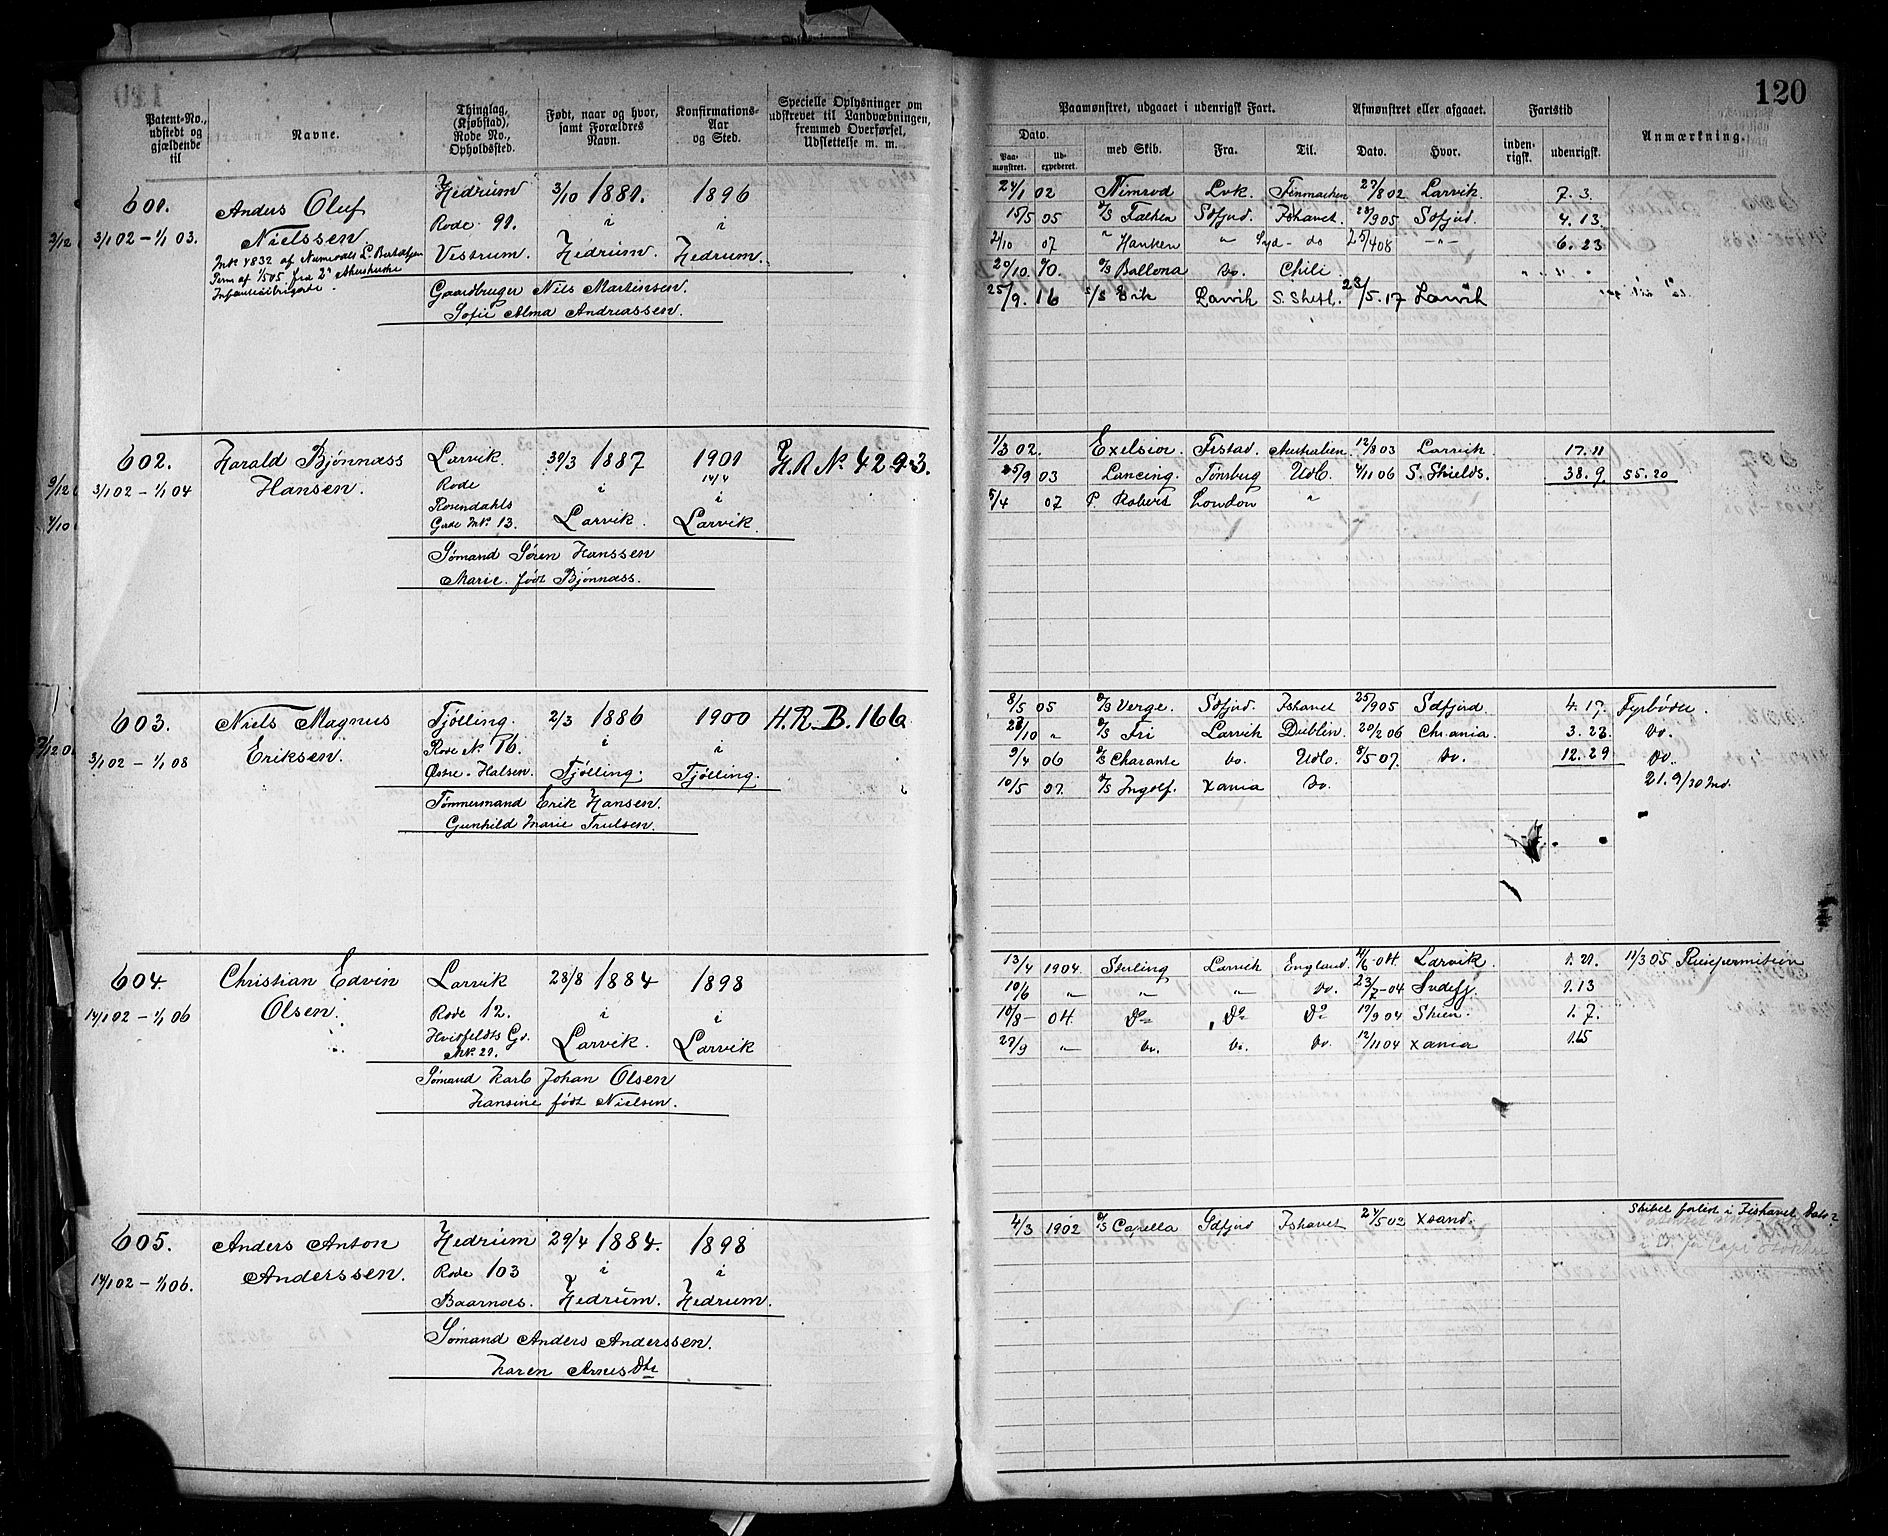 120
Patent-No., udstedt og gjældende til
Navne.
Thinglag, (Kjøbstad), Rode No., Opholdssted.
Født, naar og hvor, samt Forældres Navn.
Konfirmations-Aar og Sted.
Specielle Oplysninger om udskrevet til Landvæbningen, fremmed Overførsel, Udslettelse m. m.
Paamønstret, udgaaet i udenrigsk Fart.
Afmønstret eller afgaaet.
Fartstid
Anmærkning.
Dato.
Paa-mønstret.
Ud-expederet.
med Skib.
Fra.
Til.
Dato.
Hvor.
inden-rigsk.
udenrigsk.
601. Anders Oluf Hedrum 3/10 1881. 1896
Nielssen Rode 91. i i
3/1 02 - 1/1 03. Vestrum. Hedrum. Hedrum.
Gaardbruger Niels Martinsen.
Sofie Alma Andreassen.
24/1 02 Nimrod Lvk. Finmarken 27/8 02 Larvik 7. 3.
15/5 05 D/S Falken Sdfjrd. Ishavet. 28/9 05 Sdfjrd. 4. 13.
2/10 07 " Hanken " Syd- do 25/4 08 -"- 6. 23
20/10 D/S Ballona do. Chili
25/9. 16 S/S Eik Larvik S. Shetl. 23/5. 17 Larvik
602. Harald Bjønnæss Larvik. 30/3 1887 1901 H.R. No. 4293.
Hansen. Rode i 14/4
3/1 02 - 1/1 04 Rosendahls i
Gade No. 13. Larvik. Larvik.
Sømand Søren Hanssen
Marie. født Bjønnæss.
1/3 02. Exelsior. Fistad. Australien. 12/8 03 Larvik 17. 11
25/9 03 Lancing. Tønsberg Udl. 4/11 06 S. Shields. 38. 9. 55. 20
5/4 07 P. Roberts London "
603. Niels Magnus Tjølling. 2/3 1886 1900 H.R.B. 166.
Eriksen. Rode No. 76. i i
3/1 02 - 1/1 08 Østre-Halsen. Tjølling. Tjølling.
Tømmermand Erik Hansen.
Gunhild Marie Trulsen.
8/5 05 D/S Verge. Sdfjrd. Ishavet 25/9 05 Sdfjrd 4. 17. Fyrbøder.
28/10 " D/S Fri Larvik Dublin. 20/2 06 Chrania. 3. 23. Do.
9/4 06 D/S Charante do. Udl. 8/5 07. do. 12. 29 Do.
10/5 07. D/S Ingolf. Xania Do. 21. 9/30 Md.
604. Christian Edvin Larvik 28/8 1884 1898
Olsen. Rode 12. i i
14/1 02 - 1/1 06 Hvidtfeldts Gd. No. 21. Larvik. Larvik
Sømand Karl Johan Olsen
Hansine født Nielsen.
13/4 1904. Sterling Larvik England. 4/6-04 Larvik. 1. 21. 11/3 05 Reisepermission
10/6 " " " do. 23/7-04 Sndefj. 1. 13
10/8- 04. Do Do Do 17/9 04 Skien. 1. 7.
27/9 " do. do. do. 12/11 04 Xania 1. 15
605. Anders Anton Hedrum 29/4 1884. 1898
Anderssen. Rode 103 i i
14/1 02 - 1/1 06. Baarnæs. Hedrum. Hedrum.
Sømand Anders Anderssen.
Karen Arnesdtr
4/3 1902 D/S Capella Sdfjrd Ishavet 27/5 02 Xsand. Skibet forlist i Ishavet